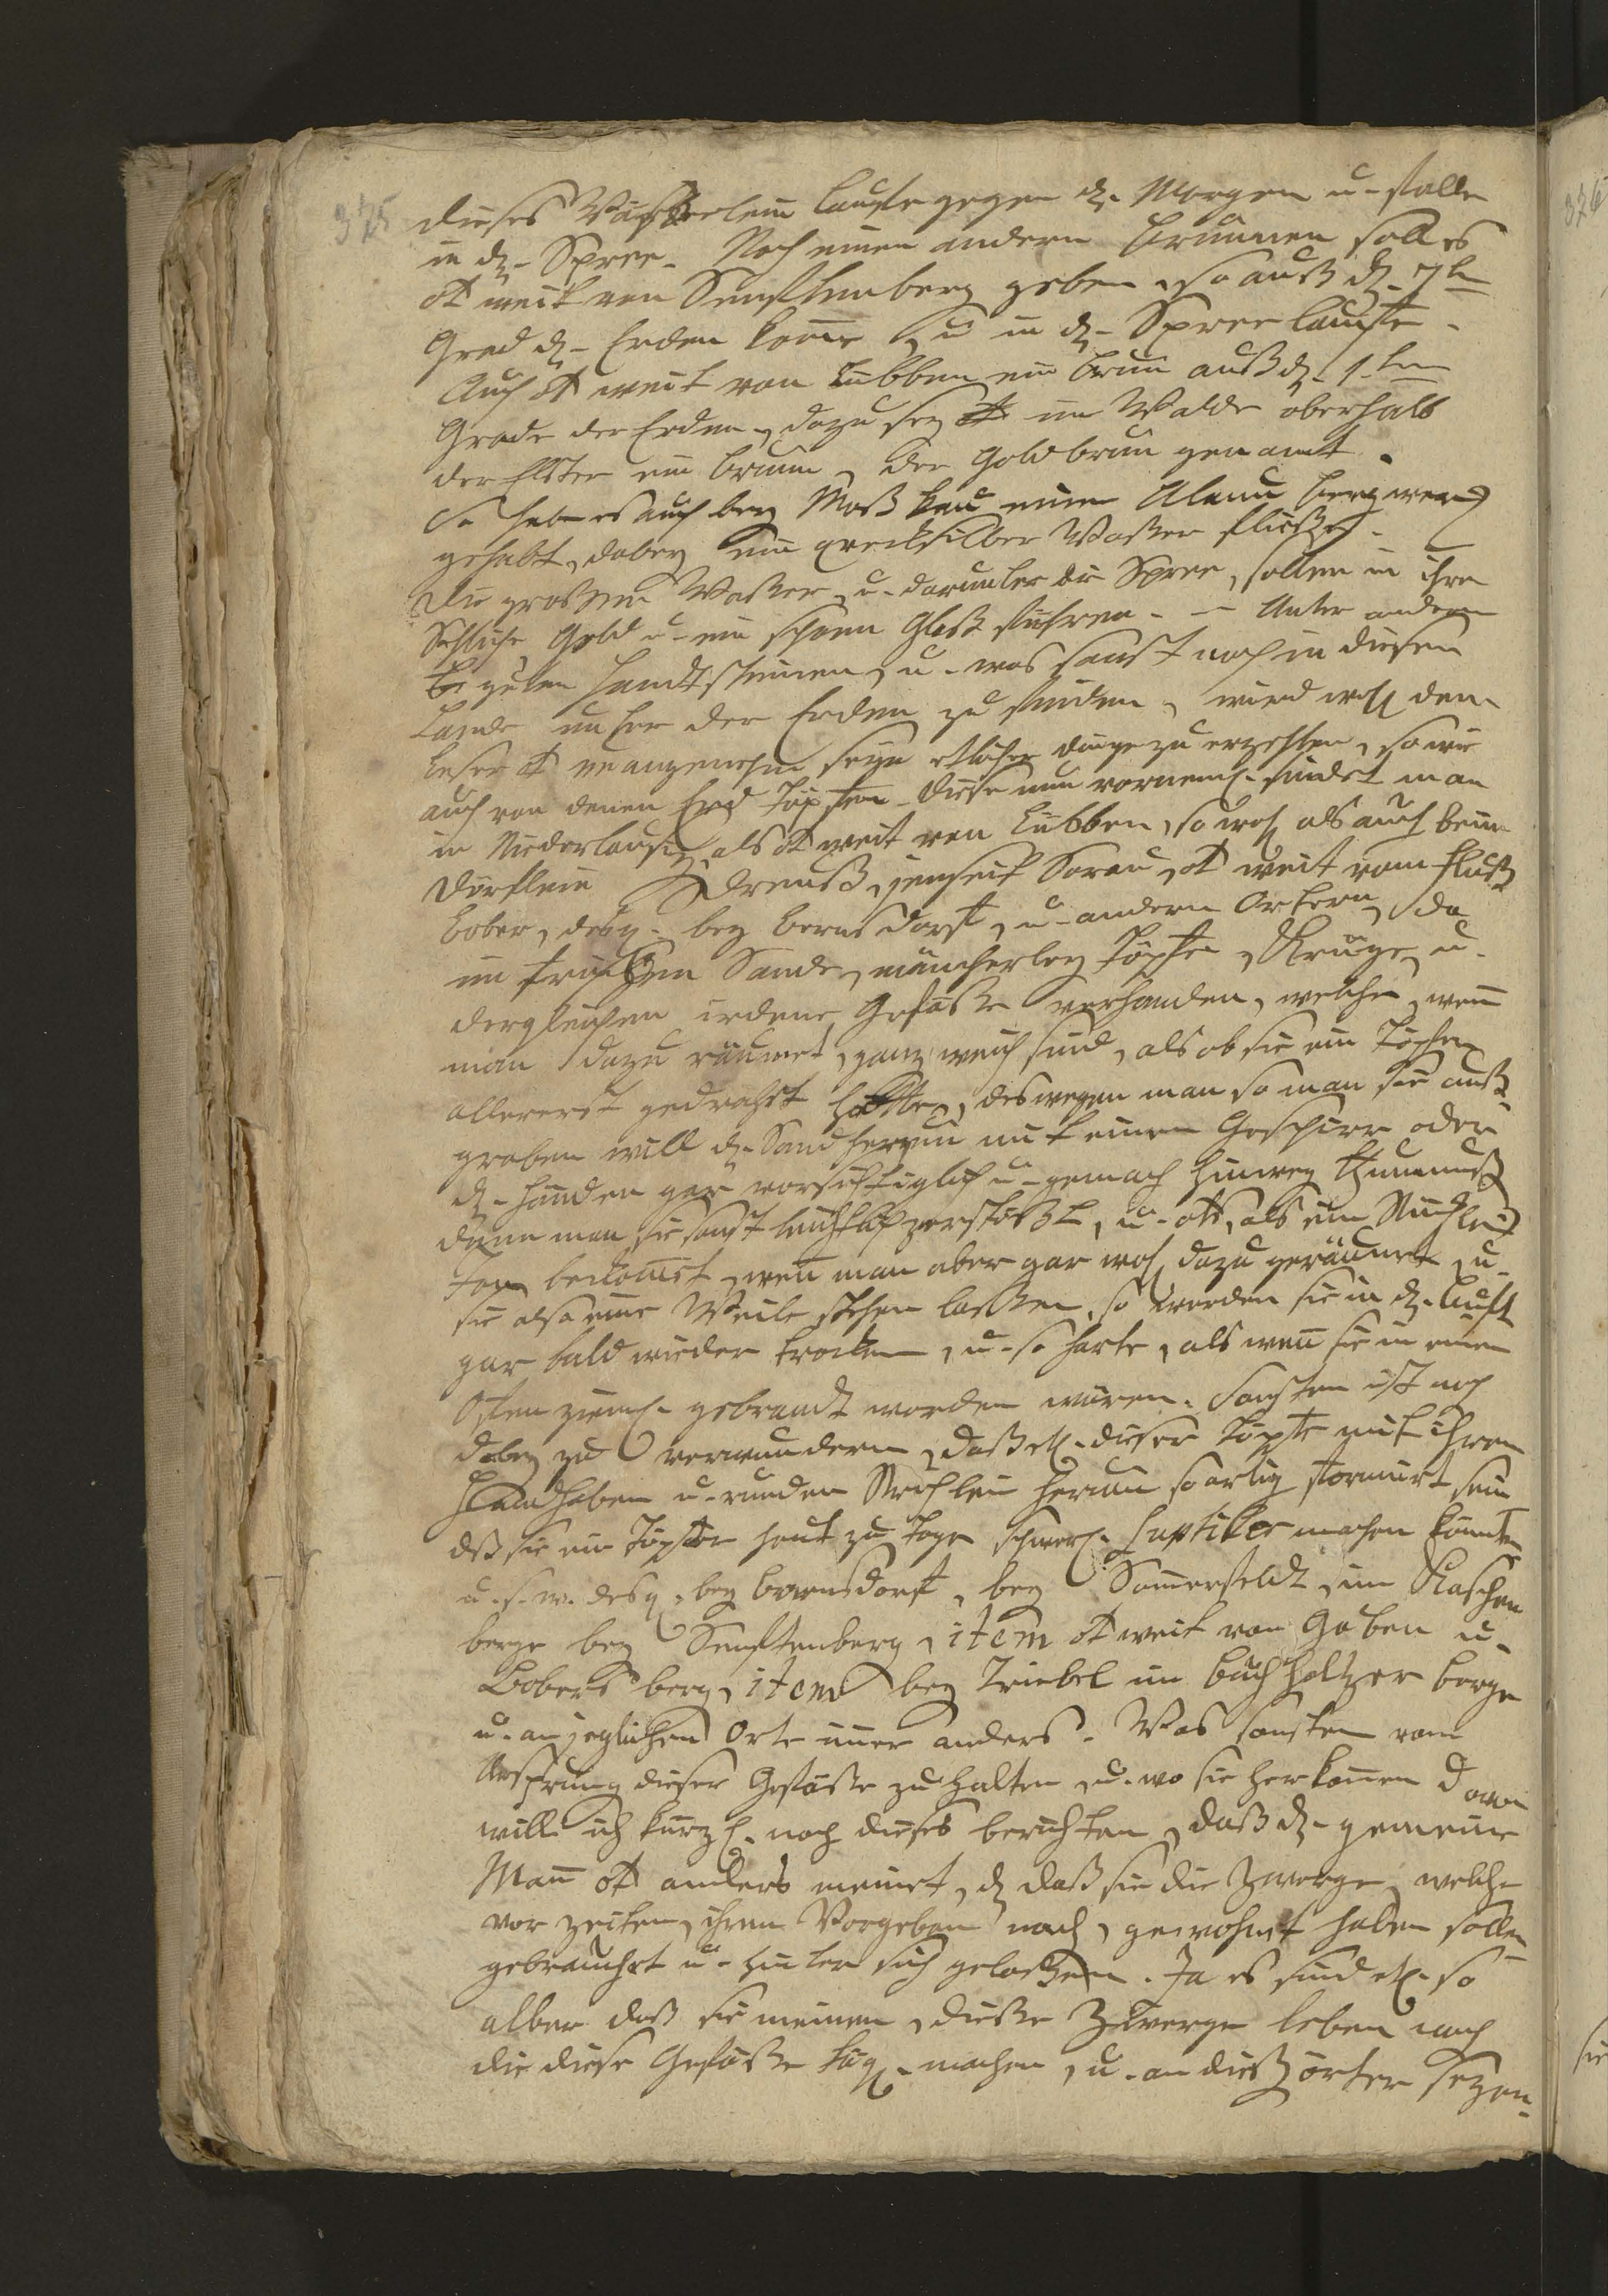 325
dieses Wäßerlein lauffe gegen dz. Morgen u. falle
in dz. Spree. Noch einen andern Brunnen soll es
ot weit von Senfftenberg geben, so auß dz. 7te
Grad dz. Erden kom̄e, u in dz. Spree lauffe.
Auch ot weit von Lübben ein brun̄ auß dz. 1ten
Grade der Erden, dazu sey ot im Walde oberhalb
der Elster ein brunn, der Goldbrun̄ genant.
So habe es auch bey Moßkau einen Alaun bergwerck
gehabt, dabey ein quecksilber Waßer fließet.
Die großen Waßer, u. darunter die Spree, sollen in ihren
Schliche Gold u. ein schönen Glaß führen. – Unter andern
guten Handtsteinen, u. was sonst noch in diesen
Lande unter der Erden zu finden, wird wohl dem
Leser ot unangenehm seyn etliche dinge zu erzehlen, so wie
auch von denen Erd Töpffen. Diese nun vorneml. findet man
in Niederlausitz, als ot weit von Lübben, so wohl als auch beim
Dörflein Dreuß, jenseit Sorau, ot weit vom Fluß
Bober, desgl. bey Bernsdorff, u. andern Ortern, da
im trucknen Sande, mancherley Töpffe, Krüge, u.
dergleichen irdene Gefäße verhanden, welche, wen̄
man dazu räumet, ganz weich sind, als ob sie ein Töpfer
allererst gedrehet hette, deswegen man so man sie auß
graben will dz. Sand herum mit einem Geschirr oder
dz. Händen gar vorsichtiglich u. gemach hinweg thun muß
denn man sie sonst leichtlich zerstößt, u. ots, als ein Stück
davon bekom̄et, wen̄ man aber gar wohl dazu geräumet, u.
sie also eine Weile stehen laßen, so werden sie in dz. Lufft
gar bald wieder trocken, u. so harte, als wen̄ sie in einem
Offen zieml. gebrandt worden wären. Sonsten ist noch
dabey zu verwundern, daß etl. dieser Töpffe mit ihren
Handhaben u. runden Strichlein herum so artig formiret sein
dß sie ein Töpffer heut zu Tage schwerl. subtiler machen könnte
u. s. w. desgl. bey bernsdorff, bey Som̄erfeldt, im Raschen
berge bey Senfftenberg, item ot weit von Guben u.
Bobersberg, item bey Triebel im Buchholtzer berge
u. an jeglichen Orte im̄er anders. Was sonsten vom
Ursprung dieser Gefäße zu halten, u. wo sie herkom̄en davon
will ich kürzl. noch dieses berichten, daß dz. gemeine
Man̄ ot anders meinet, dz daß sie die Zwerge, welche
vor zeiten, ihrem Vorgeben nach, gewohnet haben sollen
gebrauchet u. hinter sich gelaßen. Ja es sind etl. so
alber daß sie meinen, dieße Zwerge leben noch
die diese Gefäße tägl. machen, u. an dieß örter sezen.
326
sie